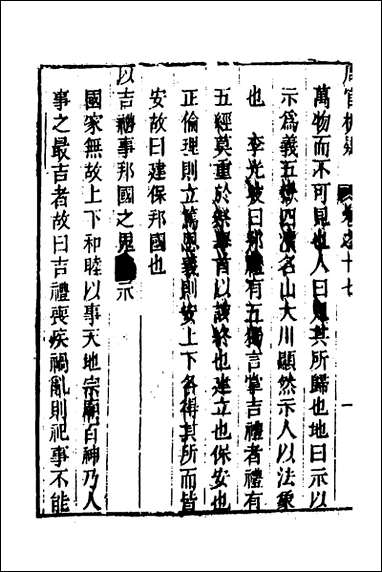 周官析疑 卷之十七 一
萬物而不可見也人曰鬼其所歸也地曰示以
示爲義五嶽四瀆名山大川顯然示人以法象
也 李光坡曰邦禮有五獨言掌吉禮者禮有
五經莫重於祭舉首以該終也建立也保安也
正倫理則立篤恩義則安上下各得其所而皆
安故曰建保邦國也
以吉禮事邦國之鬼 示
國家無故上下和睦以事天地宗廟百神乃人
事之最吉者故曰吉禮喪疾禍亂則祀事不能